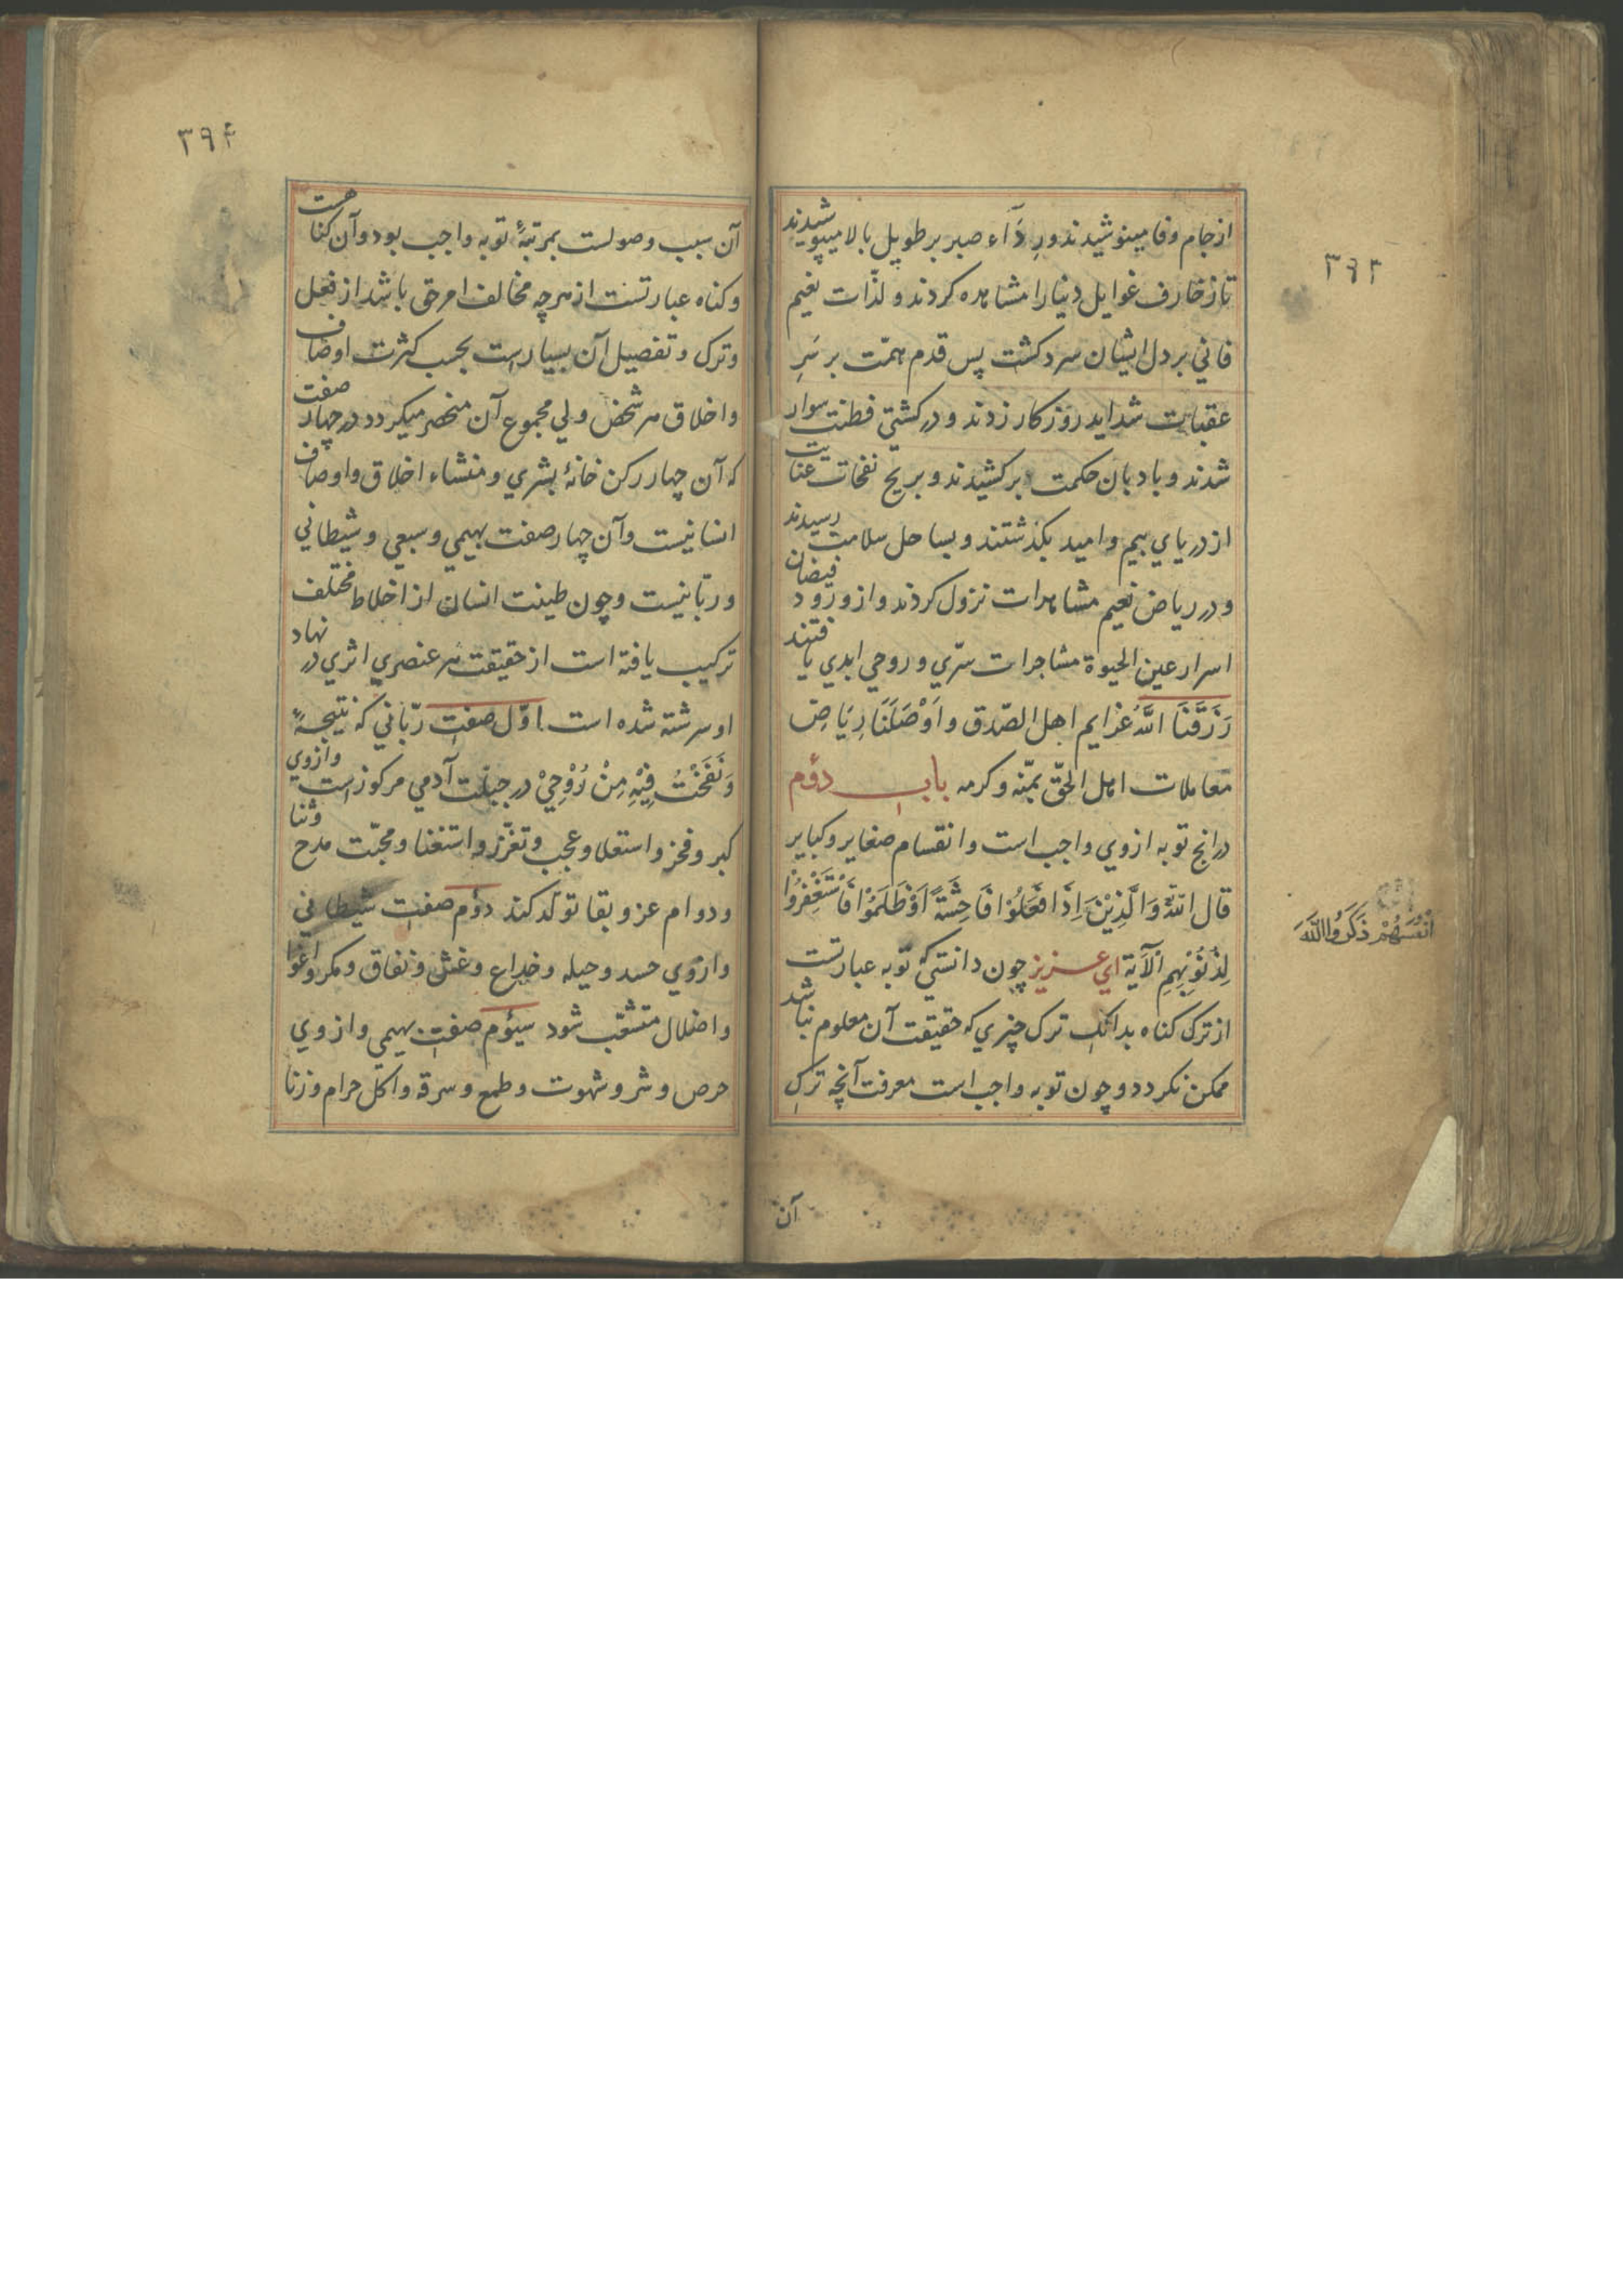 ۳۹۳
از جام وفا مینوشیدند ورِدَآء صبر بر طویل بالا میپوشیدند
تا زخارف غوایل دنیا را مشاهده کردند و لذّات نعیم
فاني بر دل ایشان سرد کشت پس قدم همّت بر سَرِ
عقبات شداید روزکار زدند و در کشتی فطنت سوار
شدند و بادبان حکمت برکشیدند و بریح نفحات عنایت
از دریاي بیم و امید بکذشتند و بساحل سلامت رسیدند
و در ریاض نعیم مشاهدات نزول کردند و از ورود فیضان
اسرار عین الحیوة مشاجرات سرّي و روحي ابدي یافتند
رَزَقَنَا اللّهُ عزایم اهل الصّدق و اَوْصَلَنَا رِیَاضِ
معاملات اهل الحقّ بمنّه و کرمه باب دؤم
در انچ توبه ازوي واجب است و انقسام صغایر و کبایر
قال اللّه وَالَّذِیْنَ اِذَا فَعَلُوْا فَاحِشَةً اَوْ ظَلَمُوْا فَاسْتَغْفِرُوْا
اَنْفُسَهُمْ ذَکَرُوا اللّٰهَ
لِذُنُوْبِهِم اْلآیَة اي عزیز چون دانستي که توبه عبارتست
از ترک کناه بدانک ترک چیزي که حقیقت آن معلوم نباشد
ممکن نکردد و چون توبه واجب است معرفت آنچه ترک
آن
۳۹۴
آن سبب وصولست بمرتبهٔ توبه واجب بود و آن کناهست
و کناه عبارتست از هرچه مخالف امر حق باشد از فعل
و ترک و تفصیل آن بسیار است بحسب کثرت اوصاف
و اخلاق هر شخص ولي مجموع آن منحصر میکردد در چهار صفت
که آن چهار رکن خانهٔ بشري و منشاء اخلاق و اوصاف
انسانیست و آن چهار صفت بهیمي و سبعي و شیطاني
و ربّانیست و چون طینت انسان از اخلاط مختلف
ترکیب یافته است از حقیقت هر عنصري اثري در نهاد
او سرشته شده است اوّل صفت ربّاني که نتیجهٔ
وَنَفَخْتُ فِیْهِ مِنْ رُوْحِيْ در جبلّت آدمي مرکوز است و ازوي
کبر و فخر و استعلا و عجب و تعزّز و استغنا و محبّت مدح و ثنا
و دوام عز و بقا تولّد کند دؤم صفت شیطاني
و ازوي حسد و حیله و خداع و غش و نفاق و مکر و اغوا
و اضلال متشعّب شود سیؤم صفت بهیمي و ازوي
حرص و شر و شهوت و طمع و سرقه و اکل حرام و زنا